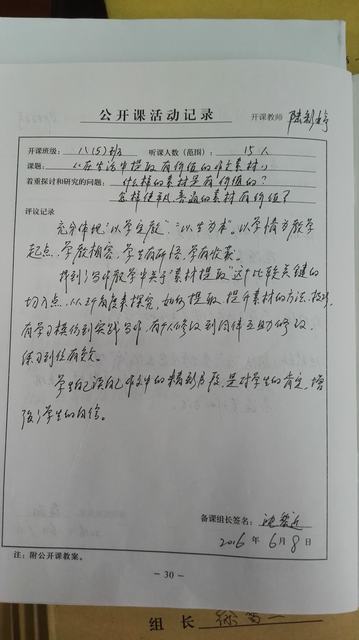 公开课活动记录
开课教师
开课班级：八(5)班 听课人数(范围)：15人
课题：《在生活中提取有价值的作文素材》
着重探讨和研究的问题：什么样的素材是有价值的？
怎样使平凡普通的素材有价值？
评议记录
充分体现"以学定教"、"以生为本"。以学情为教学
起点，学教相容，学生有所悟，学有收获。
找到了写作教学中关于"素材提取"这个比较关键的
切入点，从多角度来探究，如何提取、提升素材的方法、技巧，
有学习模仿到实践写作，有个人修改到同伴互助修改，
练习到位有效。
学生自己读自己作文中的精彩片段，是对学生的肯定，增
强了学生的自信。
备课组长签名：
2016年6月8日
注：附公开课教案。
- 30 -
组 长